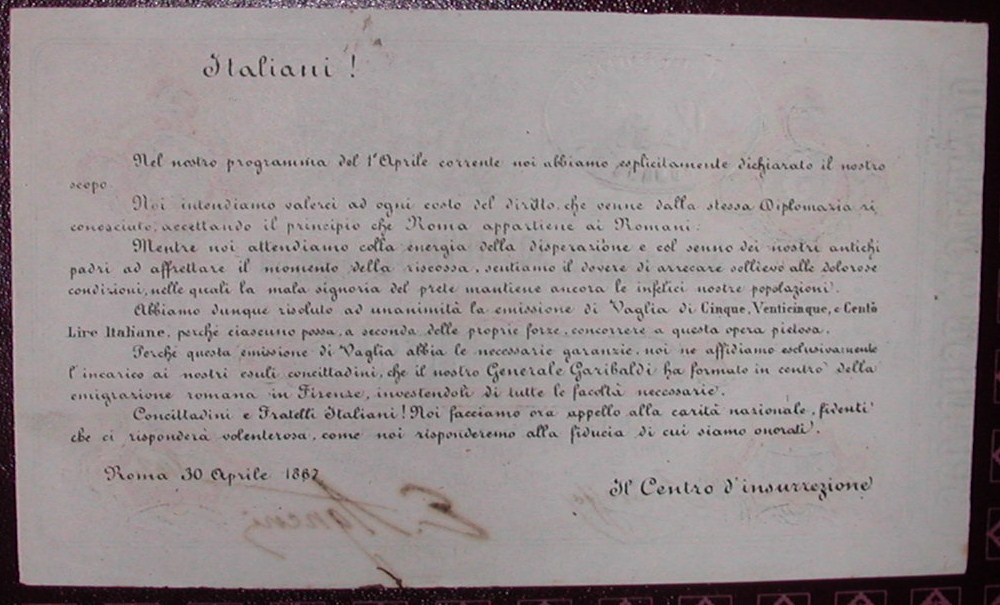 Italiani !
Nel nostro programma del 1º Aprile corrente noi abbiamo esplicitamente dichiarato il nostro
scopo.
Noi intendiamo valerci ad ogni costo del diritto, che venne dalla stessa Diplomazia ri
conosciuto, accettando il principio che Roma appartiene ai Romani.
Mentre noi attendiamo colla energia della disperazione e col senno dei nostri antichi
padri ad affrettare il momento della riscossa, sentiamo il dovere di arrecare sollievo alle dolorose
condizioni, nelle quali la mala signoria del prete mantiene ancora le infelici nostre popolazioni.
Abbiamo dunque risoluto ad unanimità la emissione di Vaglia di Cinque, Venticinque, e Cento
Lire Italiane, perché ciascuno possa, a seconda delle proprie forze, concorrere a questa opera pietosa.
Perché questa emissione di Vaglia abbia le necessarie garanzie, noi ne affidiamo esclusivamente
l'incarico ai nostri esuli concittadini, che il nostro Generale Garibaldi ha formato in centro della
emigrazione romana in Firenze, investendoli di tutte le facoltà neccessarie.
Concittadini e Fratelli Italiani! Noi facciamo ora appello alla carità nazionale, fidenti
che ci risponderà volenterosa, come noi risponderemo alla fiducia di cui siamo onorati.
Roma 30 Aprile 1867
Il Centro d'insurrezione